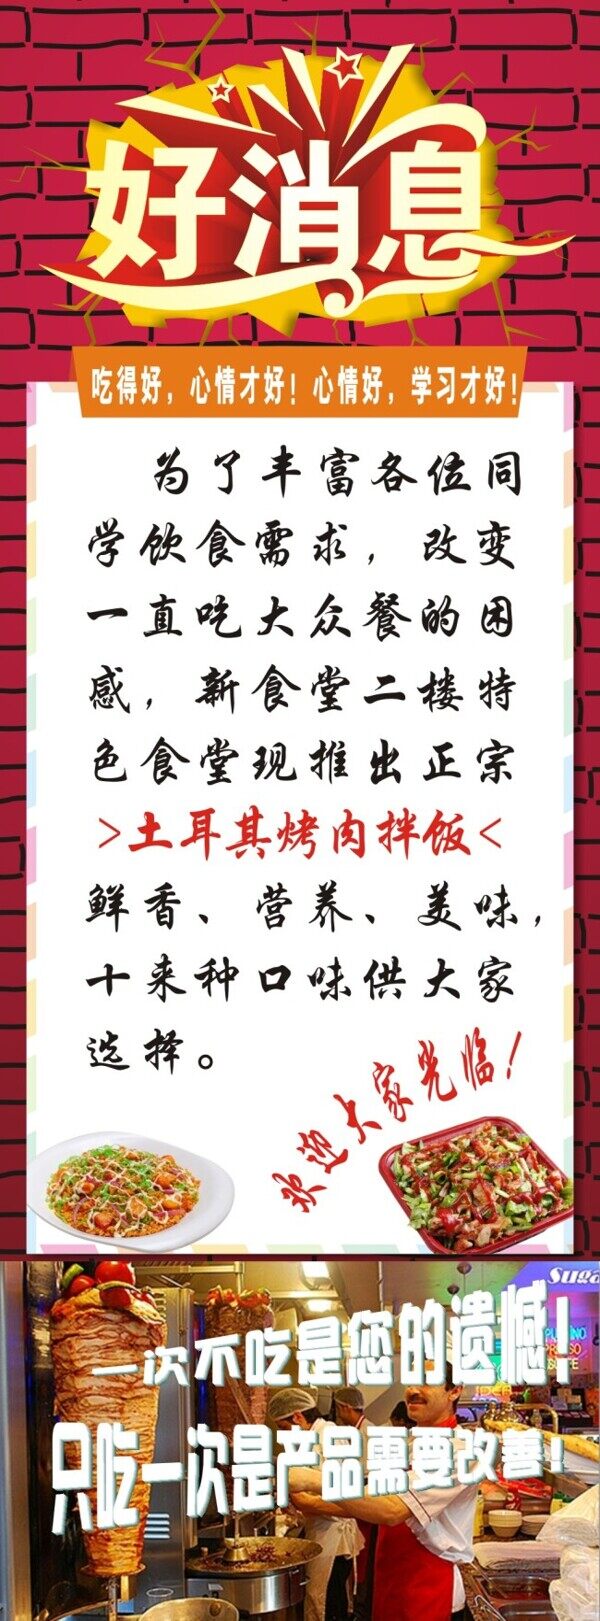 好消息
吃得好，心情才好！心情好，学习才好！
为了丰富各位同
学饮食需求，改变
一直吃大众餐的困
感，新食堂二楼特
色食堂现推出正宗
>土耳其烤肉拌饭<
鲜香、营养、美味，
十来种口味供大家
选择。
欢迎大家光临！
Suga
一次不吃是您的遗憾！
只吃一次是产品需要改善！